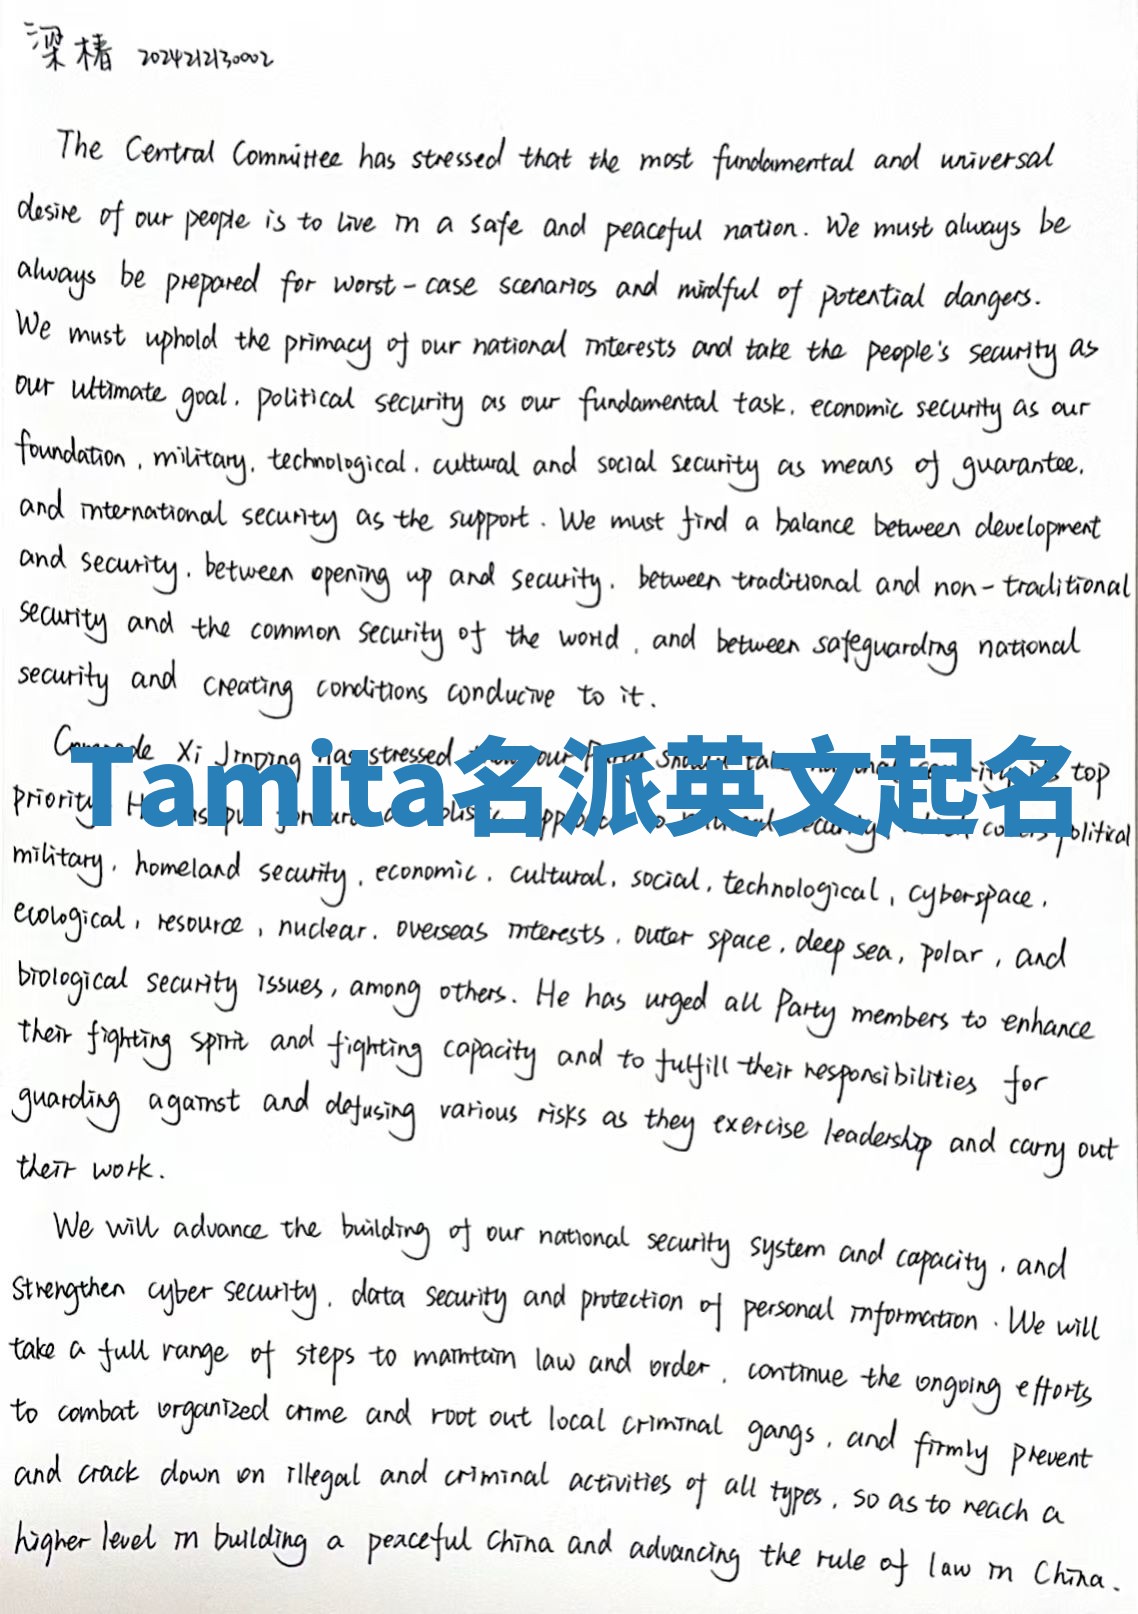 梁椿 2024212130002
The Central Committee has stressed that the most fundamental and universal
desire of our people is to live in a safe and peaceful nation. We must always be
always be prepared for worst-case scenarios and mindful of potential dangers.
We must uphold the primacy of our national interests and take the people's security as
our ultimate goal, political security as our fundamental task, economic security as our
foundation, military, technological, cultural and social security as means of guarantee,
and international security as the support. We must find a balance between development
and security, between opening up and security, between traditional and non-traditional
security and the common security of the world, and between safeguarding national
security and creating conditions conducive to it.
Xi Jinping has stressed our top
Tamita名派英文起名
priority. political
military, homeland security, economic, cultural, social, technological, cyberspace,
ecological, resource, nuclear, overseas interests, outer space, deep sea, polar, and
biological security issues, among others. He has urged all Party members to enhance
their fighting spirit and fighting capacity and to fulfill their responsibilities for
guarding against and defusing various risks as they exercise leadership and carry out
their work.
We will advance the building of our national security system and capacity, and
strengthen cyber security, data security and protection of personal information. We will
take a full range of steps to maintain law and order, continue the ongoing efforts
to combat organized crime and root out local criminal gangs, and firmly prevent
and crack down on illegal and criminal activities of all types, so as to reach a
higher level in building a peaceful China and advancing the rule of law in China.